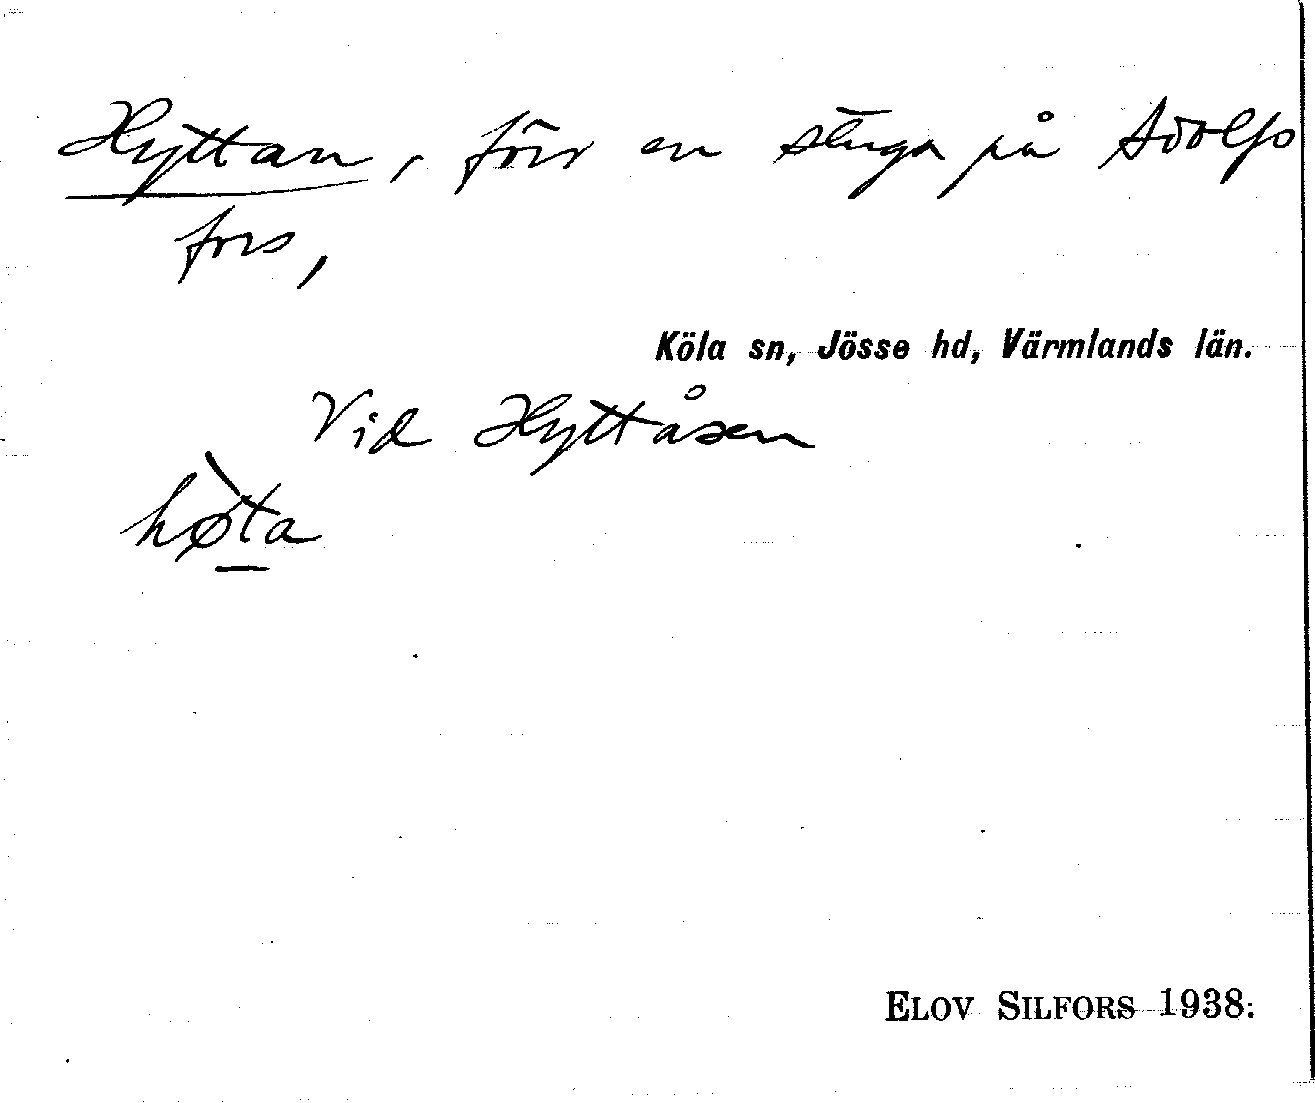 Hyttan, förr en stuga på Adolfs
fors,
Köla sn, Jösse hd, Värmlands län.
Vid Hyttåsen
hø̀ta
ELOV SILFORS 1938.